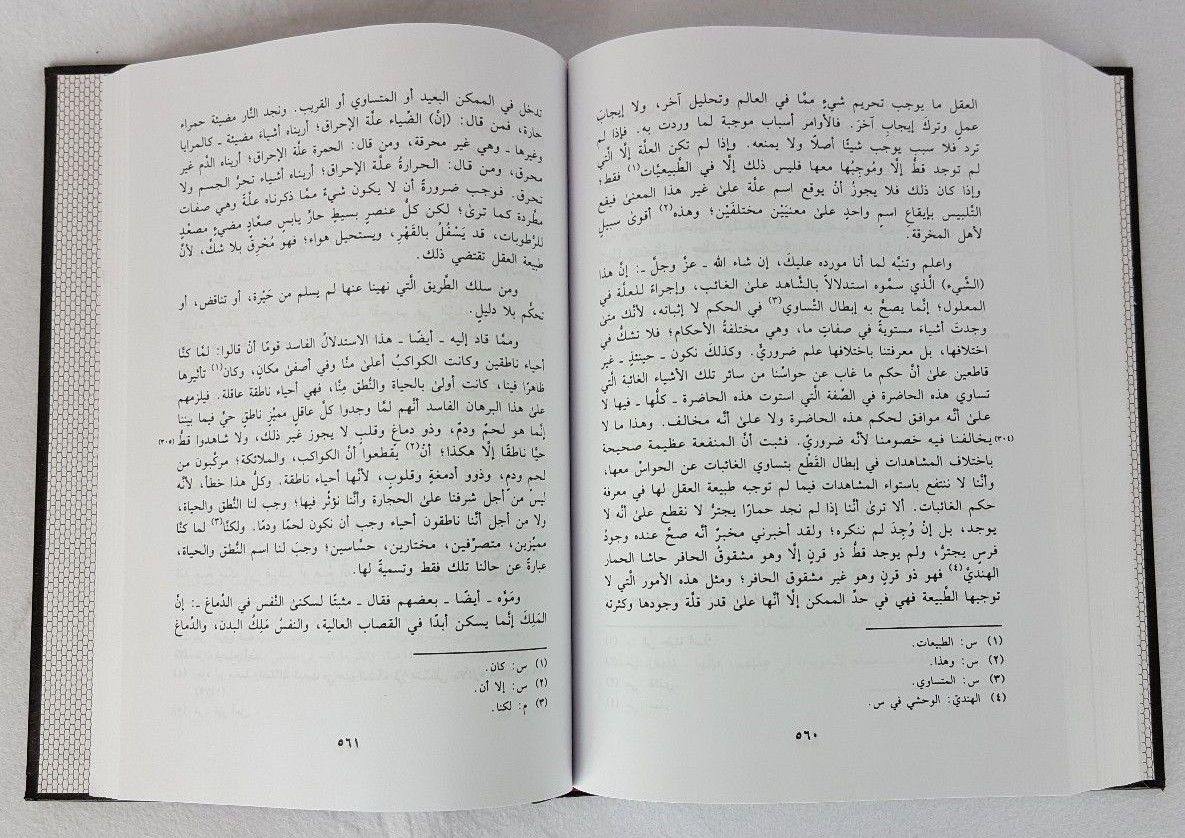 العقل ما يوجب تحريم شيءٍ ممَّا في العالم وتحليل آخر، ولا إيجابِ
عملٍ وتركَ إيجابِ آخرَ. فالأوامر أسباب موجبة لما وردت به. فإذا لم
ترد فلا سبب يوجب شيئًا أصلًا ولا يمنعه. وإذا لم تكن العلّة إلَّا الَّتي
لم توجد قطُّ إلَّا ومُوجِبُها معها فليس ذلك إلَّا في الطَّبيعيَّات(١) فقط؛
وإذا كان ذلك فلا يجوزُ أنْ يوقع اسم علّة علىٰ غير هذا المعنى فيقع
التَّلبيس بإيقاعِ اسمٍ واحدٍ علىٰ معنيَيْن مختلفَيْن؛ وهذه(٢) أقوىٰ سبيلٍ
لأهل المخرقة.
واعلم وتنبَّه لما أنا مورده عليكَ، إن شاء الله ـ عزَّ وجلَّ ـ: إنَّ هذا
(الشَّيء) الَّذي سمَّوه استدلالاً بالشَّاهد علىٰ الغائب، وإجراءً للعلّة في
المعلول؛ إنَّما يصحُّ به إبطال التَّساوي(٣) في الحكم لا إثباته، لأنَّك متىٰ
وجدتَ أشياءَ مستويةً في صفاتٍ ما، وهي مختلفةُ الأحكام؛ فلا تشكَّ في
اختلافها، بل معرفتنا باختلافها علم ضروريٌّ. وكذلكَ نكون ـ حينئذٍ ـ غير
قاطعين علىٰ أنَّ حكم ما غاب عن حواسِّنا من سائر تلك الأشياء الغائبة الَّتي
تساوي هذه الحاضرة في الصِّفة الَّتي استوت هذه الحاضرة ـ كلُّها ـ فيها لا
علىٰ أنَّه موافق لحكم هذه الحاضرة ولا علىٰ أنَّه مخالف. وهذا ما لا
(٣٠٤) يخالفنا فيه خصومنا لأنَّه ضروريٌّ. فثبت أنَّ المنفعة عظيمة صحيحة
باختلاف المشاهدات في إبطال القَطْع بتساوي الغائبات عن الحواسِّ معها،
وأنَّنا لا ننتفع باستواء المشاهدات فيما لم توجبه طبيعة العقل لها في معرفة
حكم الغائبات. ألا ترىٰ أنَّنا إذا لم نجد حمارًا يجترُّ لا نقطع علىٰ أنَّه لا
يوجد، بل إنْ وُجِدَ لم ننكره؛ ولقد أخبرني مخبرٌ أنَّه صحَّ عنده وجودُ
فرسٍ يجترُّ، ولم يوجد قطُّ ذو قرنٍ إلَّا وهو مشقوقُ الحافر حاشا الحمار
الهنديَّ(٤) فهو ذو قرنٍ وهو غير مشقوق الحافر؛ ومثل هذه الأمور الَّتي لا
توجبها الطَّبيعة فهي في حدِّ الممكن إلَّا أنَّها علىٰ قدر قلَّة وجودها وكثرته
(١) س: الطبيعات.
(٢) س: وهذا.
(٣) س: المتساوي.
(٤) الهنديّ: الوحشي في س.
٥٦٠
تدخل في الممكن البعيد أو المتساوي أو القريب. ونجد النَّار مضيئة حمراء
حارة، فمن قال: (إنَّ) الضِّياء علّة الإحراق؛ أريناه أشياءَ مضيئة ـ كالمرايا
وغيرها ـ وهي غير محرقة، ومن قال: الحمرة علَّة الإحراق؛ أريناه الدَّم غير
محرق، ومن قال: الحرارةُ علَّة الإحراق؛ أريناه أشياء تحرُّ الجسم ولا
تحرق. فوجب ضرورةً أن لا يكون شيءٌ ممَّا ذكرناه علَّةً وهي صفات
مطَّردة كما ترىٰ؛ لكن كلُّ عنصرٍ بسيطٍ حارٍّ يابس صعَّادٍ مضيءٍ مصعدٍ
للرُّطوبات، قد يَسْفُلُ بالقَهْرِ، ويستحيل هواء؛ فهو مُحْرِقٌ بلا شكٍّ، لأنَّ
طبيعة العقل تقتضي ذلك.
ومن سلك الطَّريق الَّتي نهينا عنها لم يسلم من حَيْرة، أو تناقض، أو
تحكُّم بلا دليلٍ.
وممَّا قاد إليه ـ أيضًا ـ هذا الاستدلالُ الفاسد قومًا أنْ قالوا: لمَّا كنَّا
أحياء ناطقين وكانت الكواكبُ أعلىٰ منَّا وفي أصفىٰ مكانٍ، وكان(١) تأثيرها
ظاهرًا فينا، كانت أولىٰ بالحياة والنُّطق مِنَّا، فهي أحياء ناطقة عاقلة. فيلزمهم
علىٰ هذا البرهان الفاسد أنَّهم لمَّا وجدوا كلَّ عاقلٍ مميِّزٍ ناطقٍ حيٍّ فيما بيننا
إنَّما هو لحمٌ ودمٌ، وذو دماغٍ وقلبٍ لا يجوز غير ذلك، ولا شاهدوا قطُّ (٣٠٥)
حيًّا ناطقًا إلَّا هكذا؛ أنْ(٢) يقطعوا أنَّ الكواكب، والملائكة؛ مركَّبون من
لحمٍ ودمٍ، وذوو أدمغةٍ وقلوبٍ، لأنَّها أحياء ناطقة. وكلُّ هذا خطأ، لأنَّه
ليس من أجل شرفنا علىٰ الحجارة وأنَّنا نؤثِّر فيها؛ وجب لنا النُّطق والحياة،
ولا من أجل أنَّنا ناطقون أحياء وجب أن نكون لحمًا ودمًا. ولكنَّا(٣) لما كنَّا
مميِّزين، متصرِّفين، مختارين، حسَّاسين؛ وجبَ لنا اسم النُّطق والحياة،
عبارةً عن حالنا تلك فقط وتسميةً لها.
ومَوَّه ـ أيضًا ـ بعضهم فقال ـ مثبتًا لسكنىٰ النَّفس في الدِّماغ ـ: إنَّ
المَلِكَ إنَّما يسكن أبدًا في القصاب العالية، والنفسُ مَلِكُ البدن، والدِّماغ
(١) س: كان.
(٢) س: إلا أن.
(٣) م: لكنا.
٥٦١